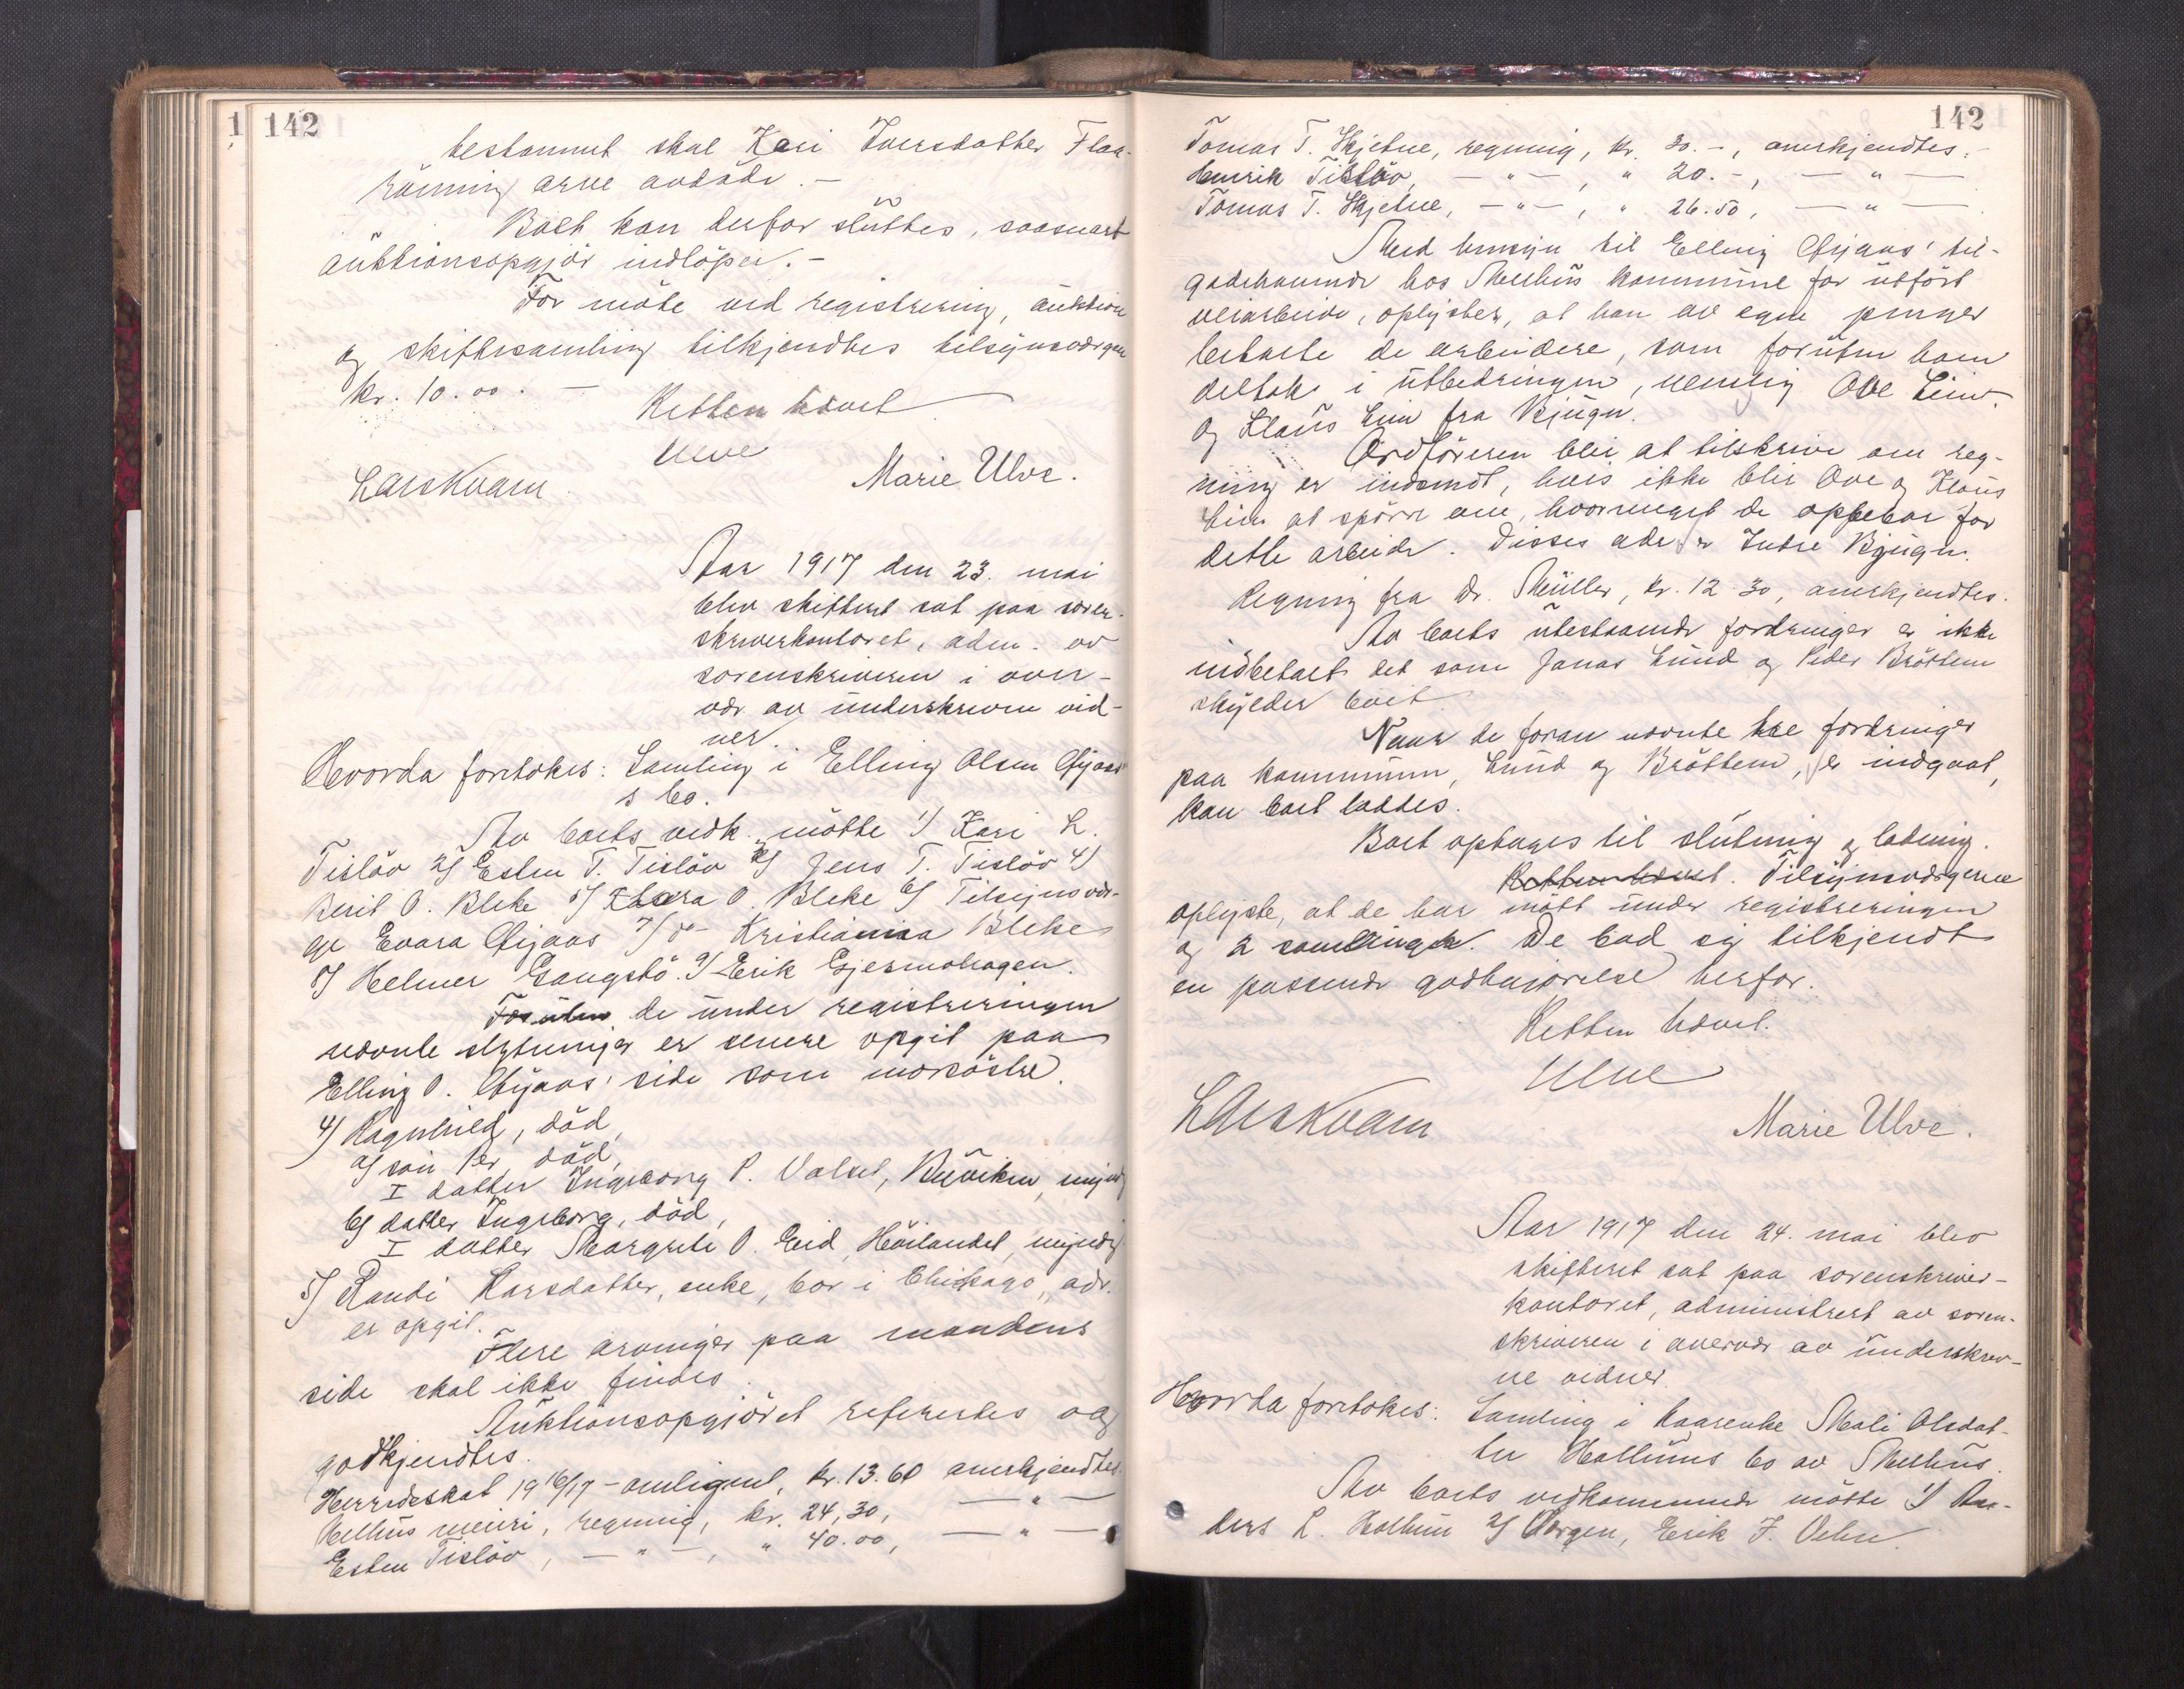 142
bestemmt skal Kari Iversdatter Flaa-
rönning arve avdöde. -
Boet kan derfor sluttes, saasnart
auktionsopgjör indlöper. -
For möte ved registrering, auktion
og skiftesamling tilkjendtes tilsynsværgen
kr. 10.00. -
Retten hævet
Ulve
Lars Kvam
Marie Ulve.
Aar 1917 den 23. mai
blev skifteret sat paa soren-
skriverkontoret, adm. av
sorenskriveren i over-
vær av underskrevne vid-
ner.
Hvorda foretokes: Samling i Elling Olsen Gijaas'
s bo.
Av boets vedk. mötte 1) Kari L.
Tislöv 2) Esten T. Tislöv 3) Jens T. Tislöv 4)
Berit O. Bleke 5) Klara O. Bleke 6) Tilsynsvær-
ge Evara Gijaas 7) do- Kristianna Bleke
8) Helmer Gaugstö. 9) Erik Gjermohagen.
Foruten de under registreringen
nævnte slegtninger er senere opgit paa
Elling O. Gijaas' side som morsöstre
4) Ragnhild, död,
a) sön Per, död,
I datter Ingeborg P. Valset, Buviken, myndig
b) datter Ingeborg, död,
I datter Margrete O. Eid, Höilandet, myndig.
5) Randi Larsdatter, enke, bor i Chikago, adr.
er opgit.
Flere arvinger paa mandens
side skal ikke findes.
Auktionsopgjöret refertes og
godkjendtes.
Herredsskat 1916/17 - omlignet, kr. 13.60 anerkjendtes.
Melhus meieri, regning, kr. 24,30, — " —
Esten Tislöv, — " —, " 40.00, — " —
142
Tomas T. Skjetne, regning, kr. 30.-, anerkjendtes. -
Henrik Tislöv, — " —, " 20.-, — " —
Tomas T. Skjetne, — " —, " 26.50, — " —
Med hensyn til Elling Gijaas' til-
godehavende hos Melhus kommune for utfört
veiarbeide, oplystes, at han av egne penger
betalte de arbeidere, som foruten ham
deltok i utbedringen, nemlig Ove Lein
og Klaus Lein fra Bjugn.
Ordföreren blir at tilskrive om reg-
ning er indsendt, hvis ikke blir Ove og Klaus
Lein at spörre om, hvormeget de oppebar for
dette arbeide. Disses adr. er Indre Bjugn.
Regning fra Dr. Müller, kr. 12.30, anerkjendtes.
Av boets utestaaende fordringer er ikke
indbetalt det som Jonas Lund og Peder Bröttem
skylder boet.
Naar de foran nævnte tre fordringer
paa kommunen, Lund og Bröttem, er indgaat,
kan boet loddes.
Boet optages til slutning og lodning.
Retten hævet. Tilsynsværgerne
oplyste, at de har mött under registreringen
og 2 samlinger. De bad sig tilkjendt
en passende godtgjörelse herfor.
Retten hævet.
Ulve
Lars Kvam
Marie Ulve.
Aar 1917 den 24. mai blev
skifteret sat paa sorenskriver-
kontoret, administrert av soren-
skriveren i overvær av underskrev-
ne vidner.
Hvorda foretokes: Samling i kaarenke Mali Olsdat-
ter Hollums bo av Melhus.
Av boets vedkommende mötte 1) An-
ders L. Hollum 2) Værgen, Erik J. Velve